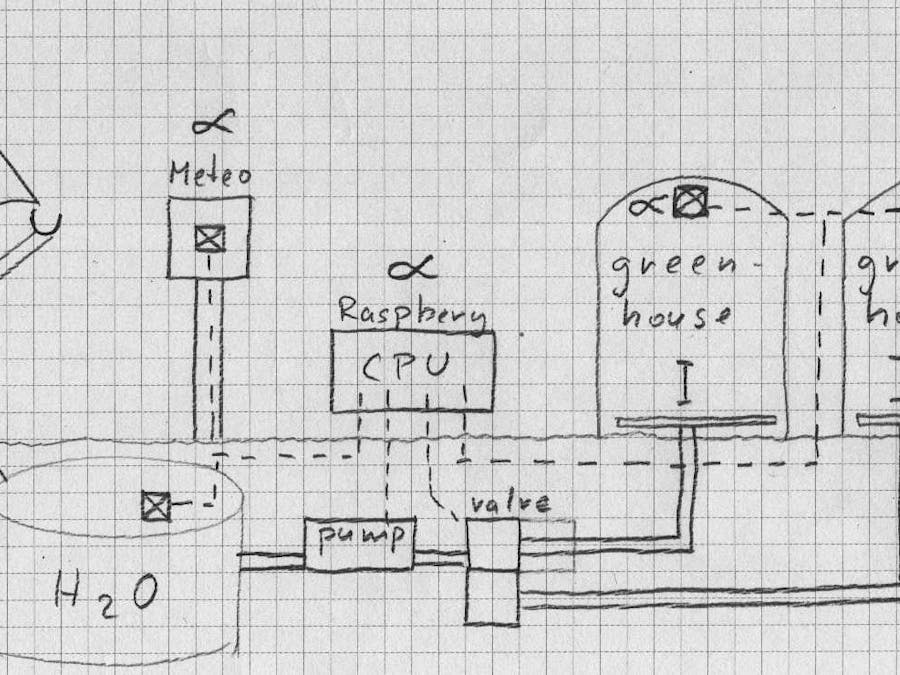 ∝
Meteo
∝
Raspbery
CPU
∝
green-
house
I
gr
ho
valve
pump
H₂O